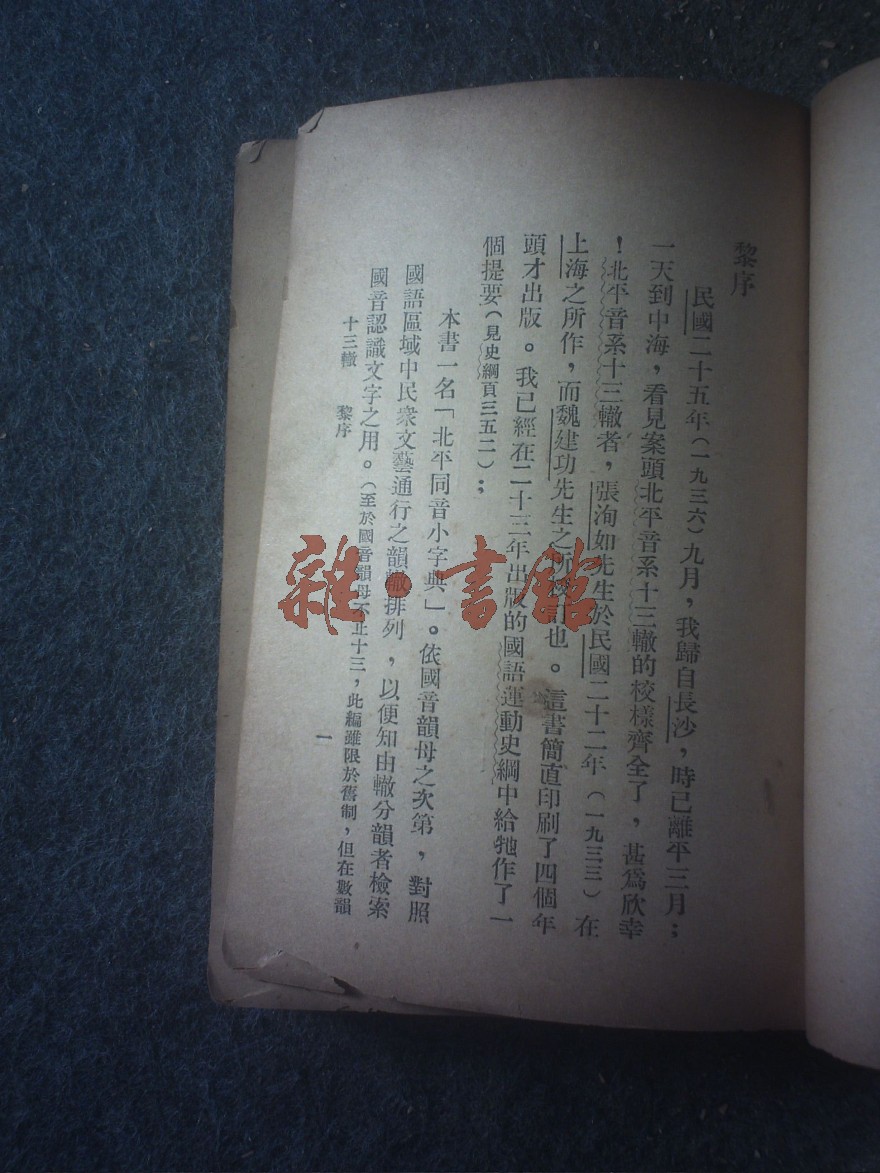 黎序
民國二十五年（一九三六）九月，我歸自長沙，時已離平三月；
一天到中海，看見案頭北平音系十三轍的校樣齊全了，甚爲欣幸
！北平音系十三轍者，張洵如先生於民國二十二年（一九三三）在
上海之所作，而魏建功先生之所校訂也。這書簡直印刷了四個年
頭才出版。我已經在二十三年出版的國語運動史綱中給牠作了一
個提要（見史綱頁三五二）；
本書一名「北平同音小字典」。依國音韻母之次第，對照
國語區域中民衆文藝通行之韻轍排列，以便知由轍分韻者檢索
國音認識文字之用。（至於國音韻母不止十三，此編雖限於舊制，但在數韻
十三轍　黎序
一
雜·書館